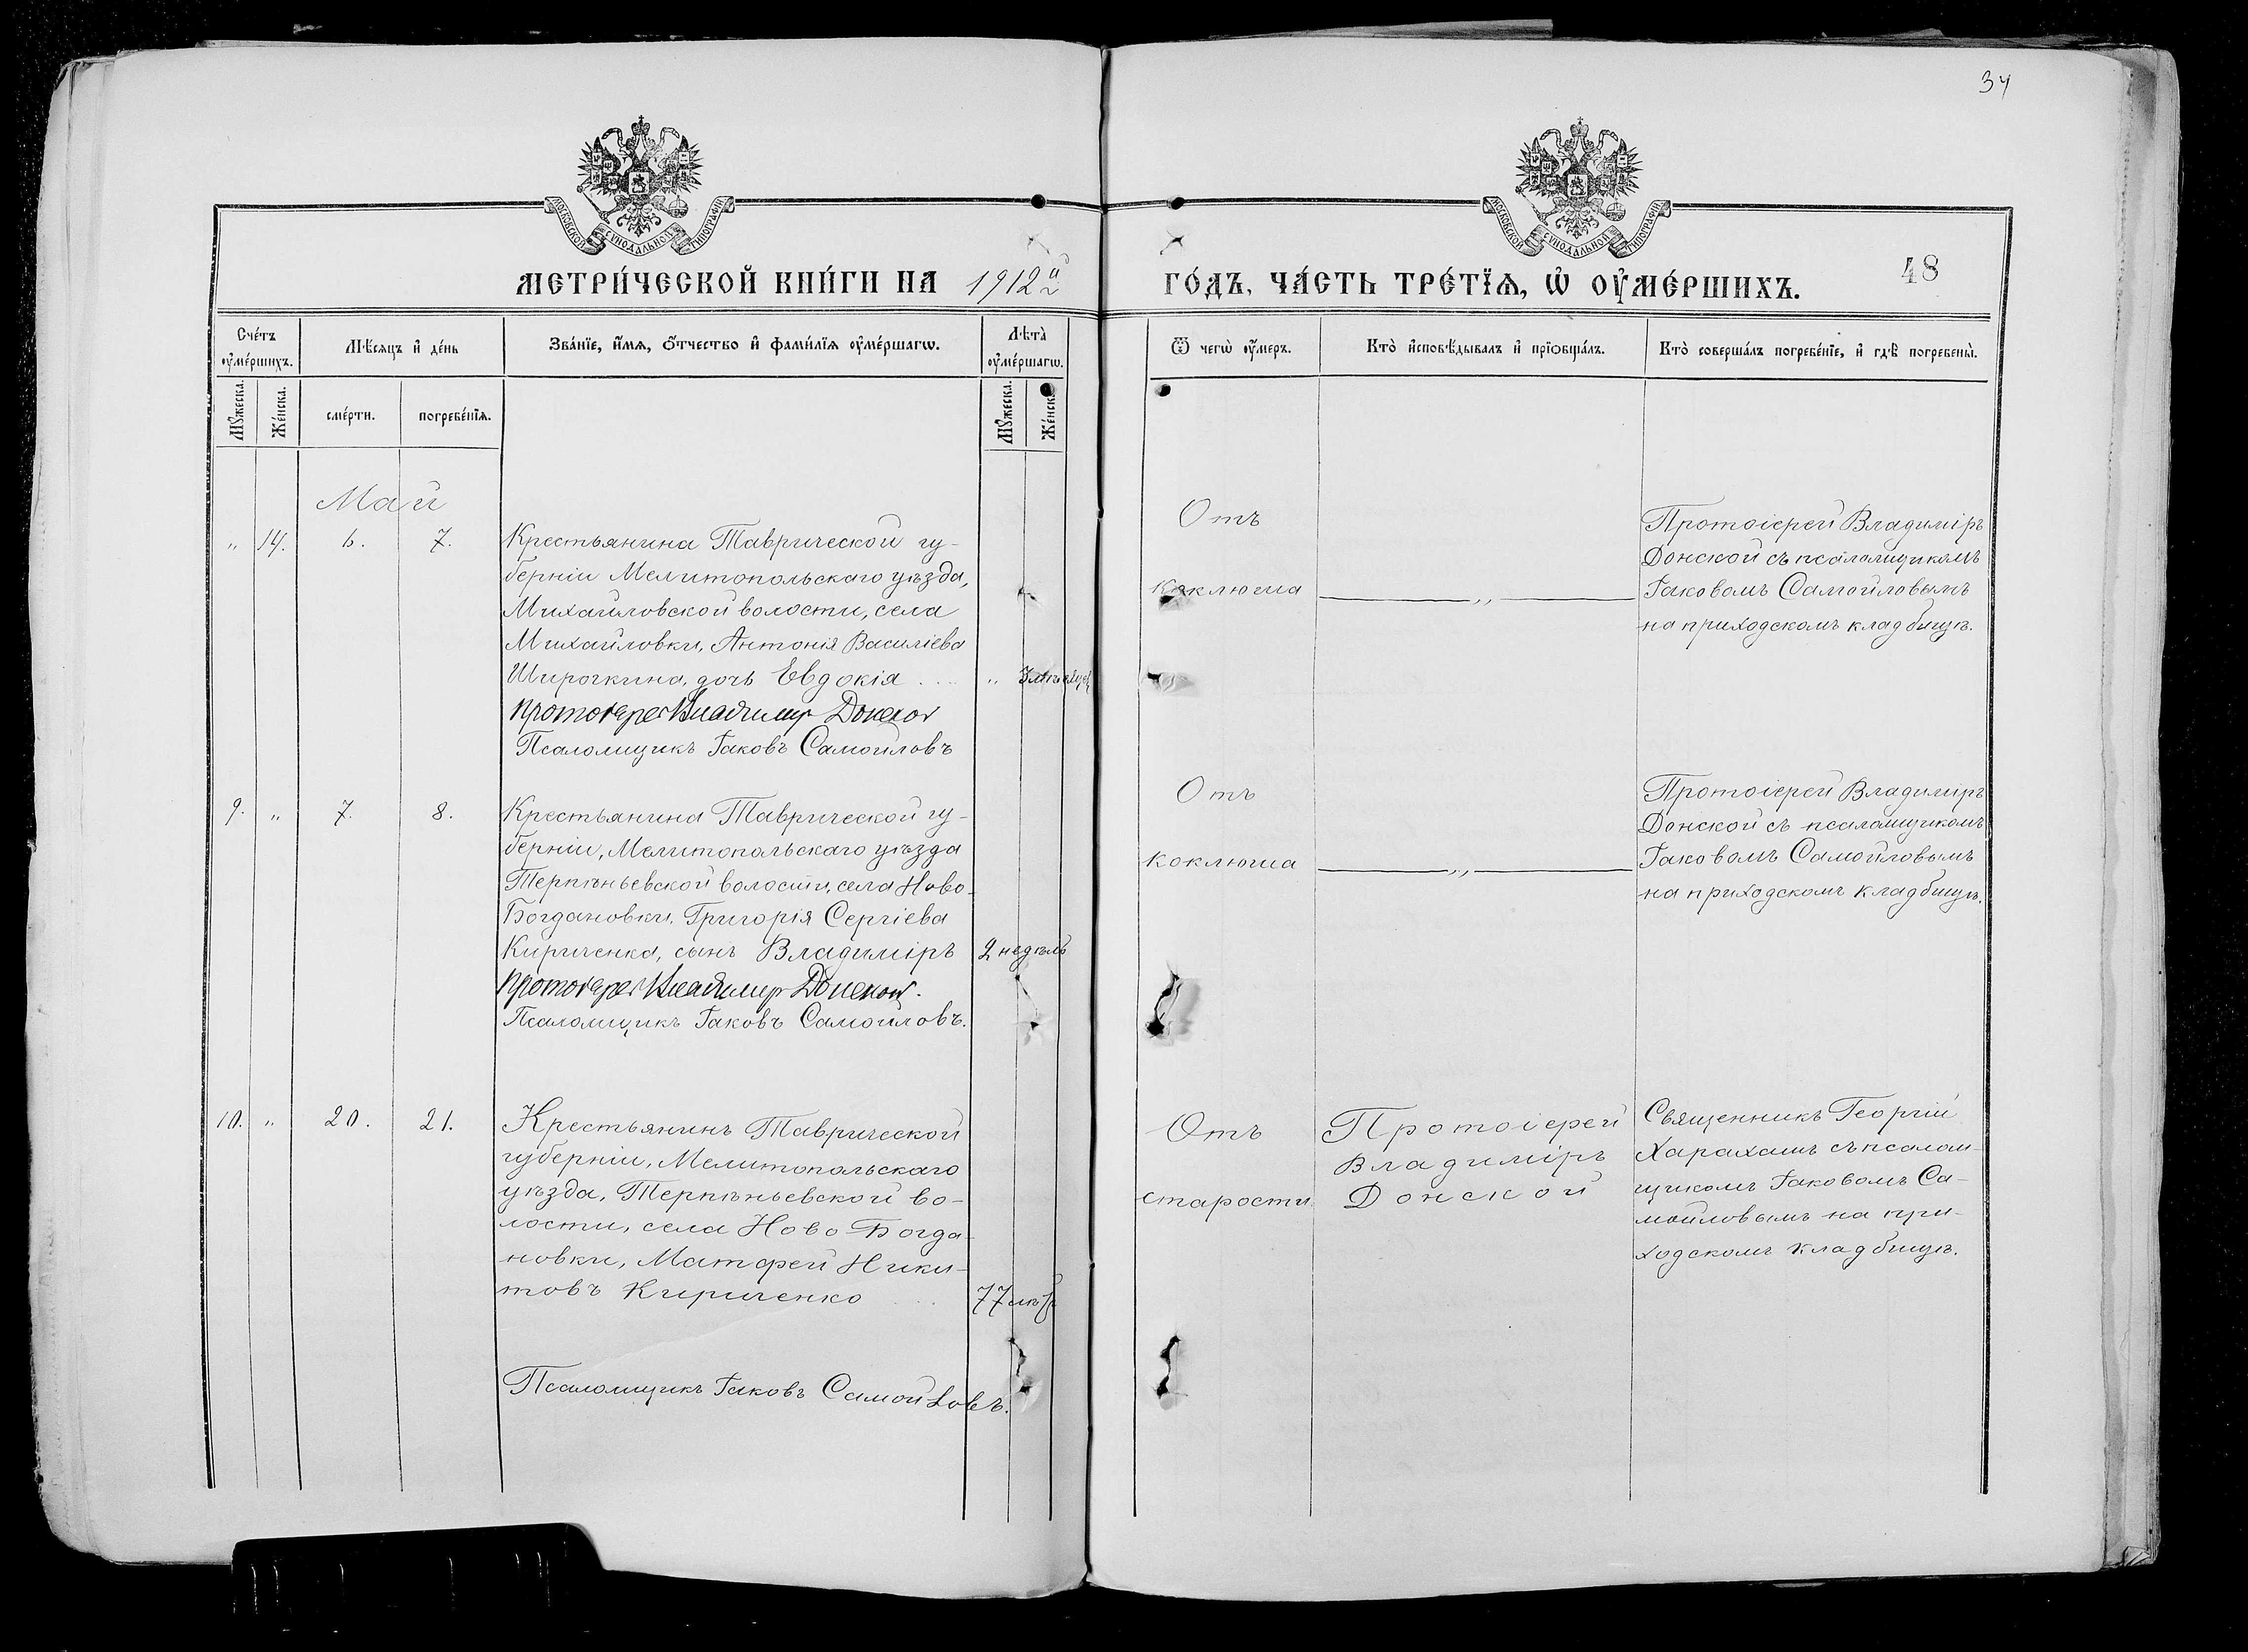 34
МОСКОВСКОЙ СУНОДАЛЬНОЙ ТИПОГРАФІИ
МОСКОВСКОЙ СУНОДАЛЬНОЙ ТИПОГРАФІИ
МЕТРИ́ЧЕСКОЙ КНИ́ГИ НА 1912й
ГО́ДЪ, ЧА́СТЬ ТРЕ́ТІѦ, Ѡ҆ ОУ҆МЕ́РШИХЪ.
48
Сче́тъ оу҆ме́ршихъ.
Мѣ́сѧцъ и҆ де́нь
Зва́нїе, и҆́мѧ, ѻ҆́тчество и҆ фами́лїѧ оу҆ме́ршагѡ.
Лѣта̀ оу҆ме́ршагѡ.
Ѿ чегѡ̀ оу҆́меръ.
Кто̀ и҆сповѣ́дывалъ и҆ прїѡбща́лъ.
Кто̀ соверша́лъ погребе́нїе, и҆ гдѣ̀ погребены̀.
Мꙋ́жеска.
Же́нска.
сме́рти.
погребе́нїѧ.
Мꙋ́жеска.
Же́нска.
Май
" 14. 6. 7.
Крестьянина Таврической гу-
берніи Мелитопольскаго уѣзда,
Михайловской волости, села
Михайловки, Антонія Василіева
Широчкина, дочь Евдокія ....
"
Протоіерей Владимір Донской
Псаломщикъ Іаковъ Самойловъ
Отъ
коклюша
"
Протоіерей Владиміръ
Донской съ псаломщикомъ
Іаковомъ Самойловымъ
на приходскомъ кладбищѣ.
9. " 7. 8.
Крестьянина Таврической гу-
берніи, Мелитопольскаго уѣзда
Терпѣньевской волости, села Ново-
Богдановки, Григорія Сергіева
Кириченко, сынъ Владиміръ
2 недѣль
Протоіерей Владимір Донской.
Псаломщикъ Іаковъ Самойловъ.
Отъ
коклюша
"
Протоіерей Владиміръ
Донской съ псаломщикомъ
Іаковомъ Самойловымъ
на приходскомъ кладбищѣ.
10. " 20. 21.
Крестьянинъ Таврической
губерніи, Мелитопольскаго
уѣзда, Терпѣньевской во-
лости, села Ново-Богда-
новки, Матфей Ники-
товъ Кириченко ....
77 лѣтъ
Псаломщикъ Іаковъ Самойловъ.
Отъ
старости
Протоіерей
Владиміръ
Донской
Священникъ Георгій
Харахашъ съ псалом-
щикомъ Іаковомъ Са-
мойловымъ на при-
ходскомъ кладбищѣ.